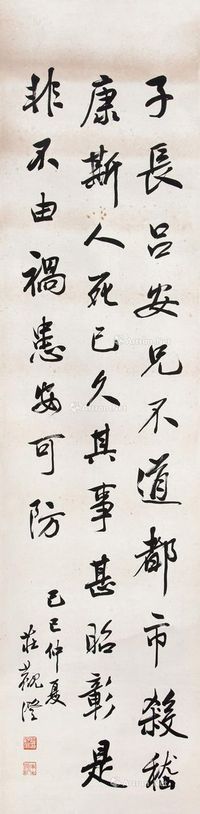 子長呂安兄不道都市殺嵇
康斯人死已久其事甚昭彰是
非不由禍患安可防
己巳仲夏
莊觀澄